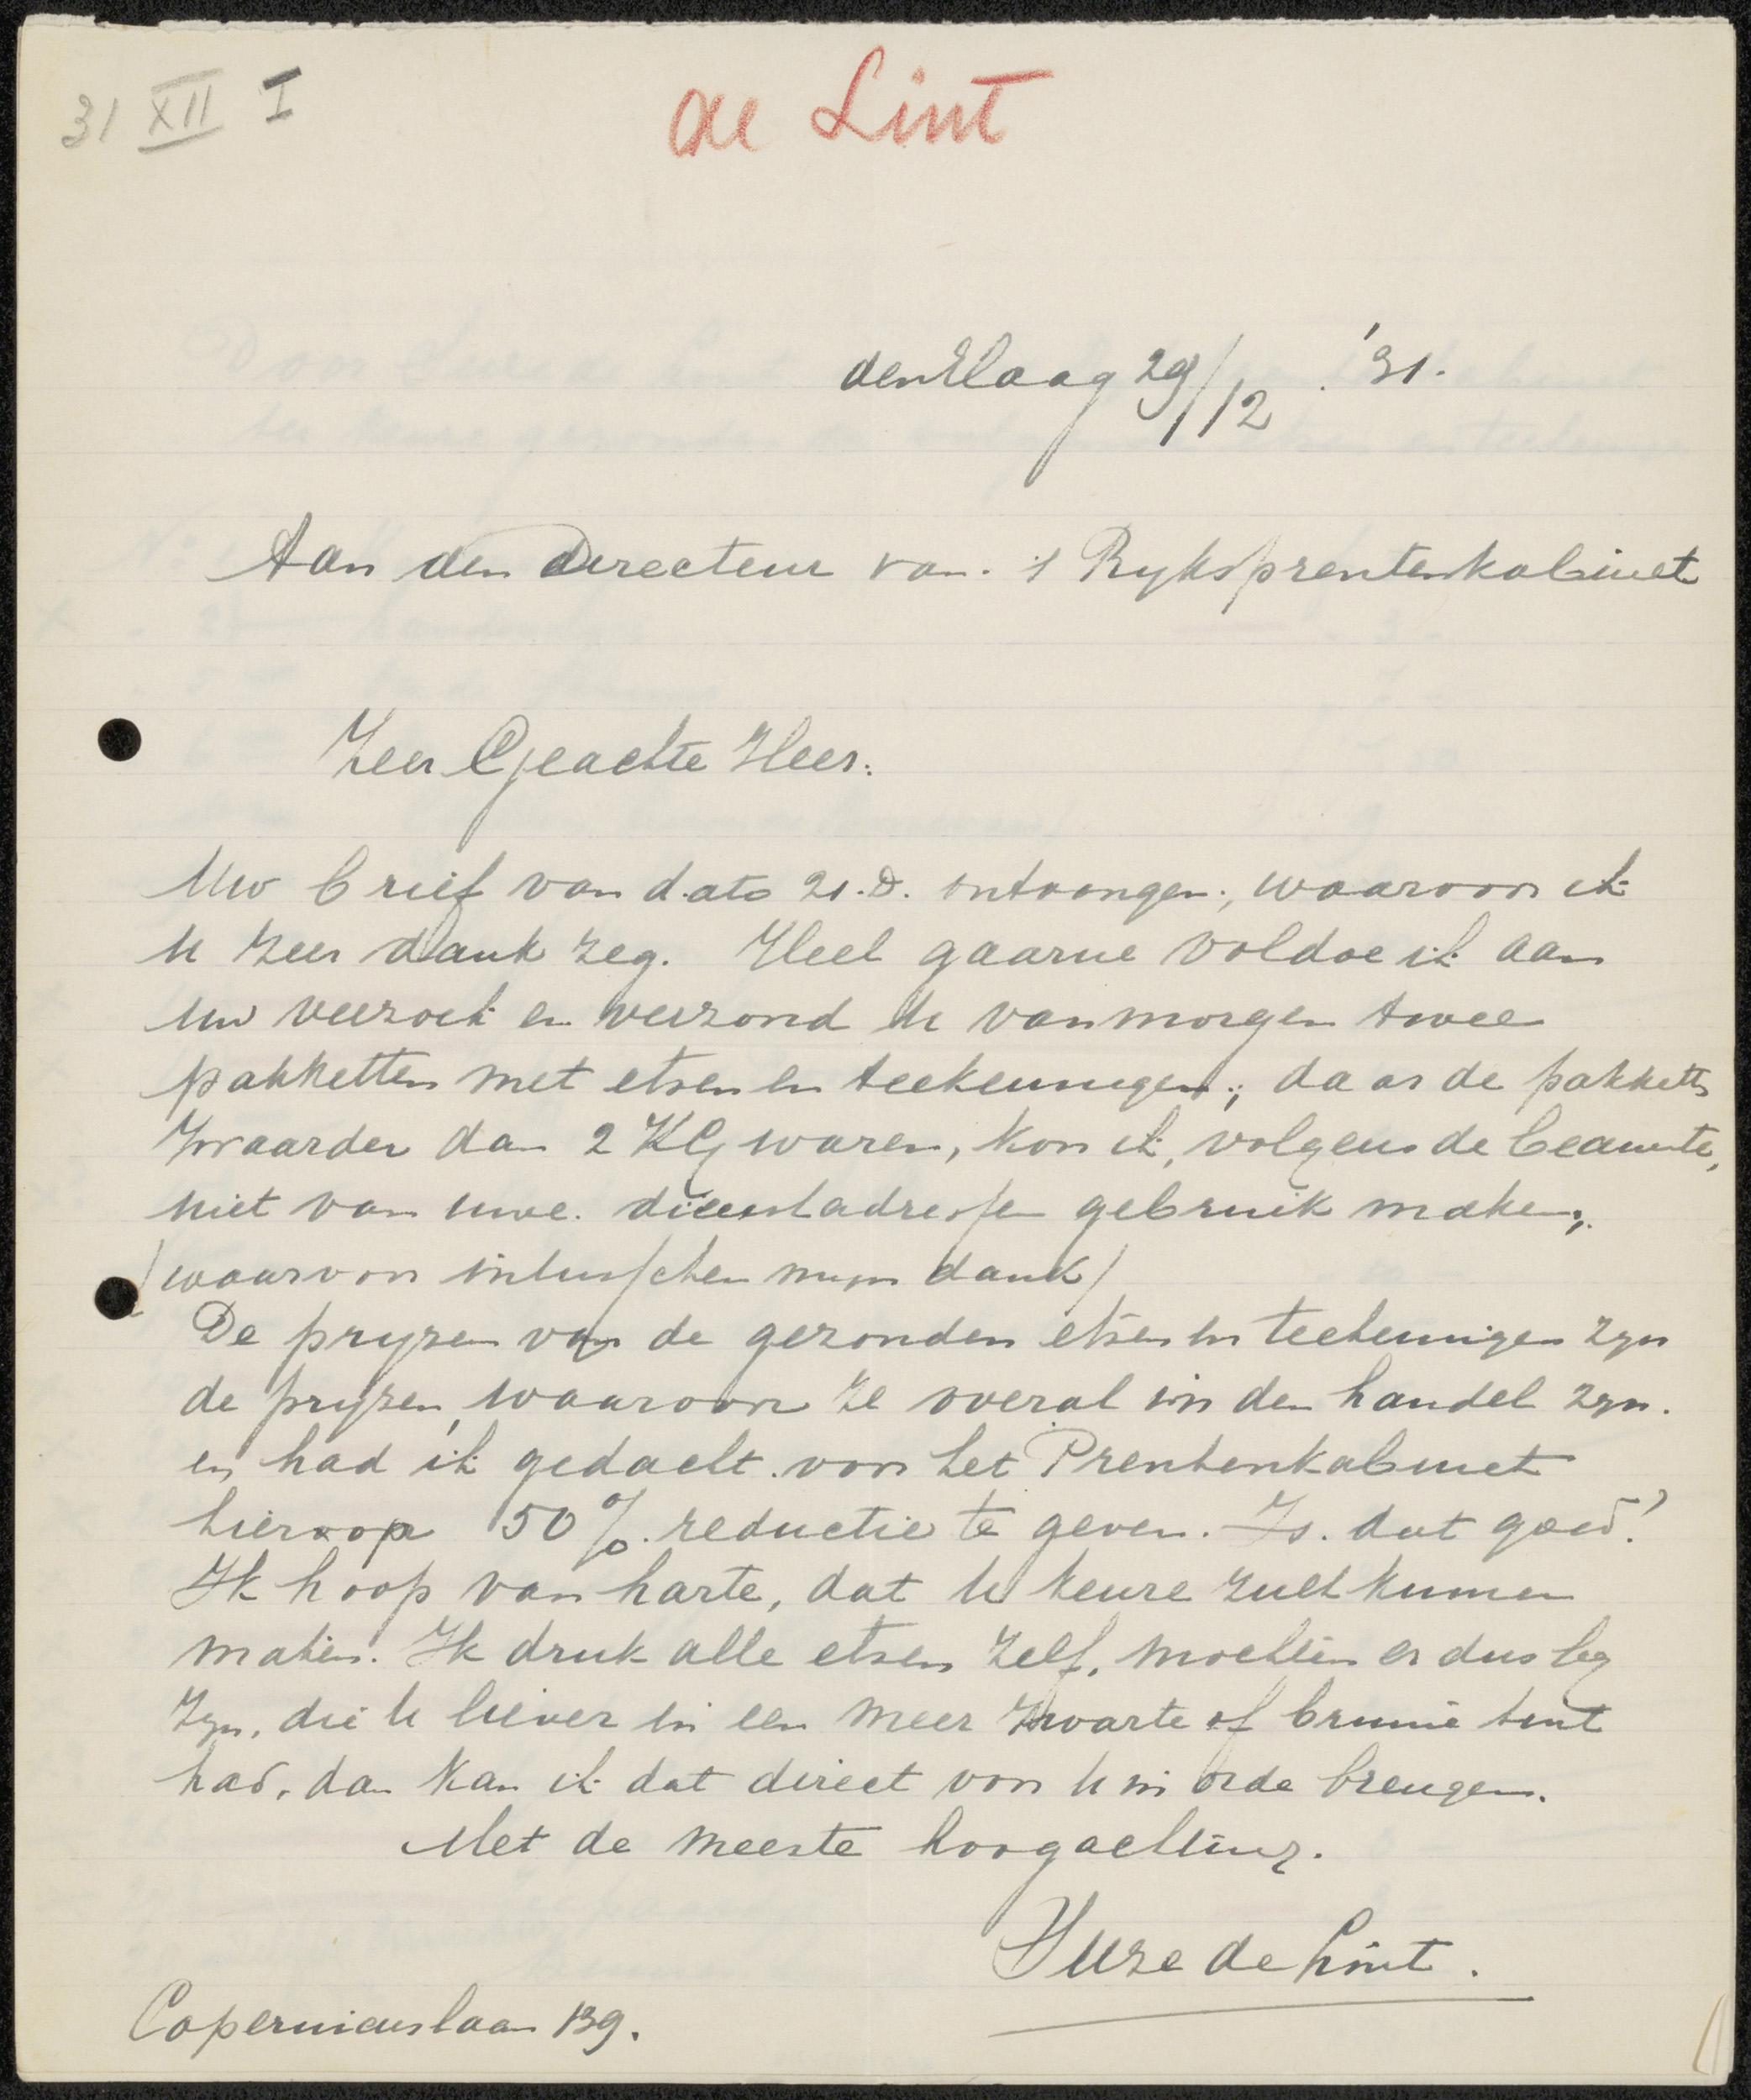 31 XII I
de Lint
den Haag 29/12 . '31.
Aan den Directeur van. 't Ryksprentenkabinet
Zeer Geachte Heer:
Uw brief van dato 21.D. ontvangen; waarvoor ik
U zeer dank zeg. Heel gaarne voldoe ik aan
uw verzoek en verzond U vanmorgen twee
pakketten met etsen en teekeningen; daar de pakketten
zwaarder dan 2 KG waren, kon ik, volgens de beambte,
niet van uwe. dienstadressen gebruik maken;
(waarvoor intusschen myn dank)
De pryzen van de gezonden etsen en teekeningen zyn
de pryzen, waarvoor ze overal in den handel zyn.
en had ik gedacht. voor het Prentenkabinet
hierop 50%. reductie te geven. Is. dat goed?
Ik hoop van harte, dat U keuze zult kunnen
maken. Ik druk alle etsen zelf, mochten er dus by
zyn, die U liever in een meer zwarte of bruine tint
had, dan kan ik dat direct voor U in orde brengen.
Met de meeste hoogachting.
Huze de Lint.
Copernicuslaan 139.